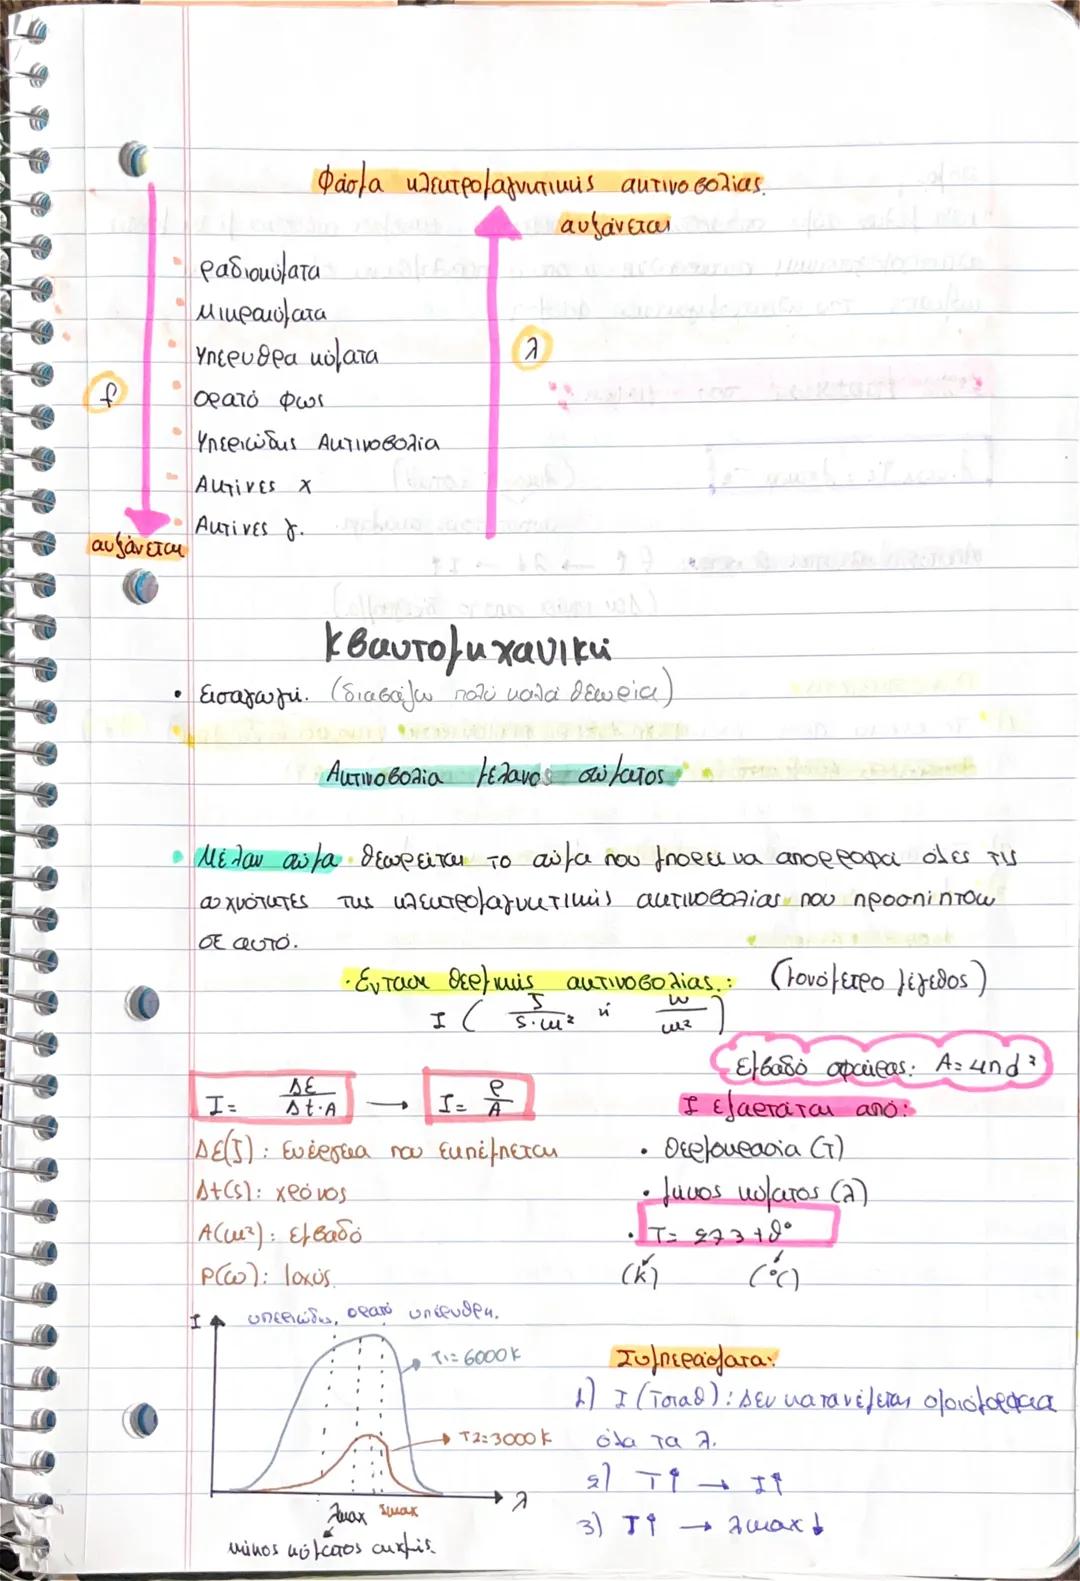 Φάσμα ηλεκτρομαγνητικής ακτινοβολίας.
αυξάνεται
ραδιοκύματα
Μικροκύματα
Υπέρυθρα κύματα
λ
f
ορατό φως
Υπεριώδης Ακτινοβολία
Ακτίνες x
Ακτίνες γ.
αυξάνεται
Κβαντομηχανική
• Εισαγωγή. (διαβάζω πολύ καλά θεωρία)
Ακτινοβολία μέλανος σώματος
• Μέλαν σώμα θεωρείται το σώμα που μπορεί να απορροφά όλες τις
συχνότητες της ηλεκτρομαγνητικής ακτινοβολίας που προσπίπτουν
σε αυτό.
• Ένταση θερμικής ακτινοβολίας: (μονόμετρο μέγεθος)
I ( J/s·m² ή W/m² )
Εμβαδό σφαίρας: A=4πd²
I = ΔΕ/Δt·A → I = P/A
I εξαρτάται από:
ΔΕ(J): Ενέργεια που εκπέμπεται
• θερμοκρασία (T)
Δt(s): χρόνος
• μήκος κύματος (λ)
A(m²): εμβαδό
• T= 273+θ°
P(w): Ισχύς.
(k) (°C)
I υπεριώδη, ορατό υπέρυθρη.
T1=6000k
Συμπεράσματα:
1) I (Τσταθ): Δεν κατανέμεται ομοιόμορφα
T2=3000k
όλα τα λ.
2) T↑ → I↑
λ
λmax λmax
3) T↑ → λmax↓
μήκος κύματος αιχμής.